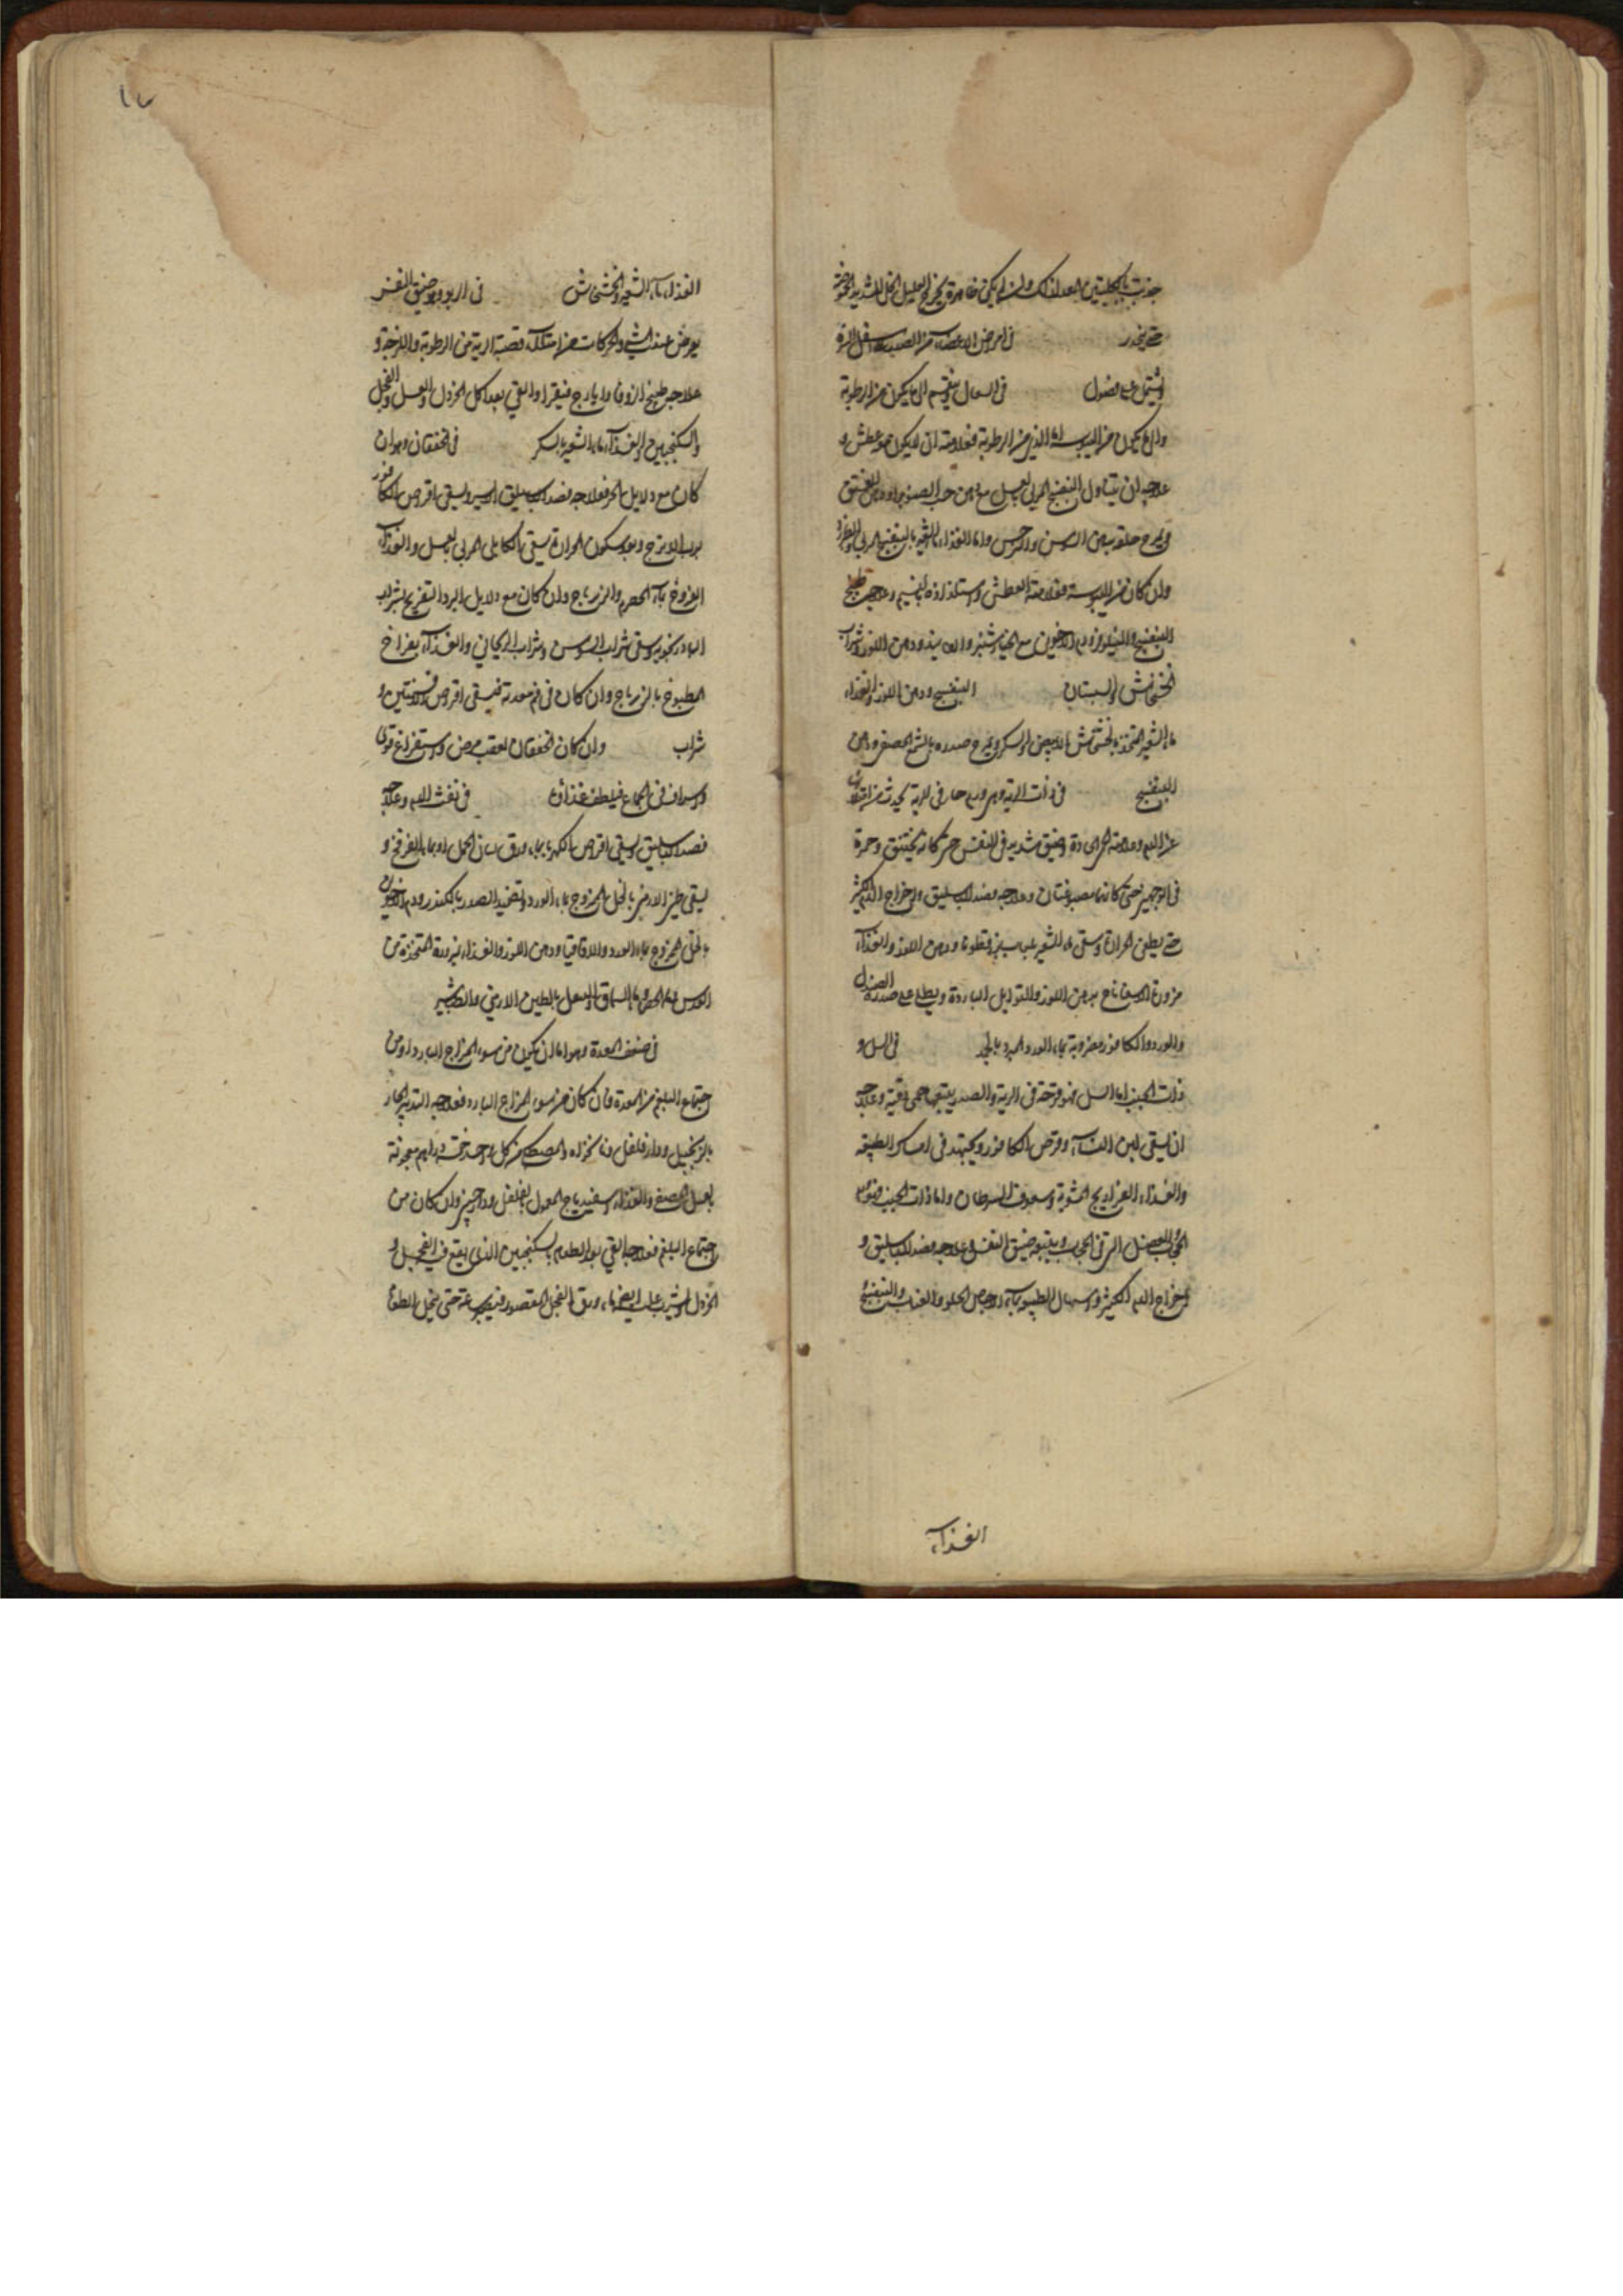 جذبت بالكلبتين المعد لذلك وان لم يكن ظاهرة يتجرع العليل الخل الشديد الحموضة
حتى ينحدر في امراض الاعضاء من الصدر الى اسفل السرة
يشتمل على فصول في السعال وينقسم الى ما يكون من الرطوبة
والى ما يكون من اليبوسة اما الذي من الرطوبة فعلامته ان لا يكون معه عطش و
علاجه ان يتناول البنفسج المربى بالعسل مع دهن حب الصنوبر او دهن الفستق
ويمرخ حلقه بدهن السوسن والنرجس واما الغذاء ماء الشعير بالبنفسج المربى
وان كان من اليبوسة فعلامته العطش واستلذاذه بالنسيم وعلاجه طبيخ
البنفسج والنيلوفر مع الخيارشنبر ودهن اللوز وشراب
الخشخاش والسبستان البنفسج ودهن اللوز والغذاء
ماء الشعير المتخذ بالخشخاش الابيض والسكر ويمرخ صدره بالشمع المصفى ودهن
البنفسج في ذات الرية وهي ورم حار في الرية يحدث من امتلاء
من الدم وعلامته حمى حادة وضيق شديد في النفس حتى كانه يختنق وحمرة
في الوجه حتى كانهما مصبوغتان وعلاجه فصد الباسليق واخراج الدم الكثير
حتى يطفئ الحرارة وسقى ماء الشعير بلعاب بزرقطونا ودهن اللوز والغذاء
مزورة الاسفاناخ بدهن اللوز والتوابل الباردة ويطلى على صدره الصندل
والورد والكافور مضروبة بماء الورد المبرد بالجمد في السل و
ذات الجنب اما السل فهو قرحة في الرية والصدر يتبعها حمى دقية وعلاجه
ان يسقى لبن النساء وقرص الكافور ويجتهد في امساك الطبيعة
والغذاء الفراريج المشوية وسفوف السرطان واما ذات الجنب فهو ورم
الحجاب والعضل التي في الجنب ويتبعه ضيق النفس وعلاجه فصد الباسليق و
اخراج الدم الكثير واسهال الطبيعة بماء الاجاص الحلو والعناب والبنفسج
الغذاء
١٧
الغذاء ماء الشعير والخشخاش في الربو وهو ضيق النفس
يعرض عند المشي والحركات من امتلاء قصبة الرية من الرطوبة واللزجة و
علاجه طبيخ الزوفا وايارج فيقرا والقي بعد اكل الخردل والعسل والفجل
والسكنجبين والغذاء ماء الشعير بالسكر في الخفقان وهو ان
كان مع دلايل الحر فعلاجه فصد الباسليق اليسير ويسقى اقراص الكافور
برب الاترج وبعد سكون الحرارة يسقى الكابلي المربى بالعسل والغذاء
الفروج بماء الحصرم والزرباج وان كان مع دلايل البرد التفريح بشراب
البادرنجبويه وسقى شراب السوسن وشراب الريحاني والغذاء بفراخ
المطبوخ بالزرباج وان كان في فم معدته فيسقى اقراص الافسنتين و
شراب وان كان الخفقان لعقب مرض واستفراغ قوي
واسراف في الجماع فيلطف غذاؤه في نفث الدم وعلاجه
فصد الباسليق ويسقى اقراص الكهربا بماء ورق لسان الحمل او بماء الفرفخ و
يسقى طين الارمني بالخل الممزوج بماء الورد وتضميد الصدر بالكندر ودم الاخوين
بالخل الممزوج بماء الورد والاقاقيا ودهن اللوز والغذاء مزورة المتخذة من
العدس وماء الحصرم وماء السماق والسعال بالطين الارمني والطباشير
في ضعف المعدة وهو اما ان يكون من سوء المزاج البارد او من
اجتماع البلغم في المعدة فان كان من سوء المزاج البارد فعلاجه التدبير الحار
بالزنجبيل ودار فلفل ونانخواه والمصطكى من كل واحد خمسة دراهم معجونة
بعسل المصفى والغذاء اسفيدباج المعمول بالفلفل ودارصيني وان كان من
اجتماع البلغم فعلاجه القي بعد الطعام بالسكنجبين الذي يقع فيه الفجل و
الخردل او شرب عليه ايضا ماء ورق الفجل المعصور فيصبر ساعة حتى ينحل الطعام